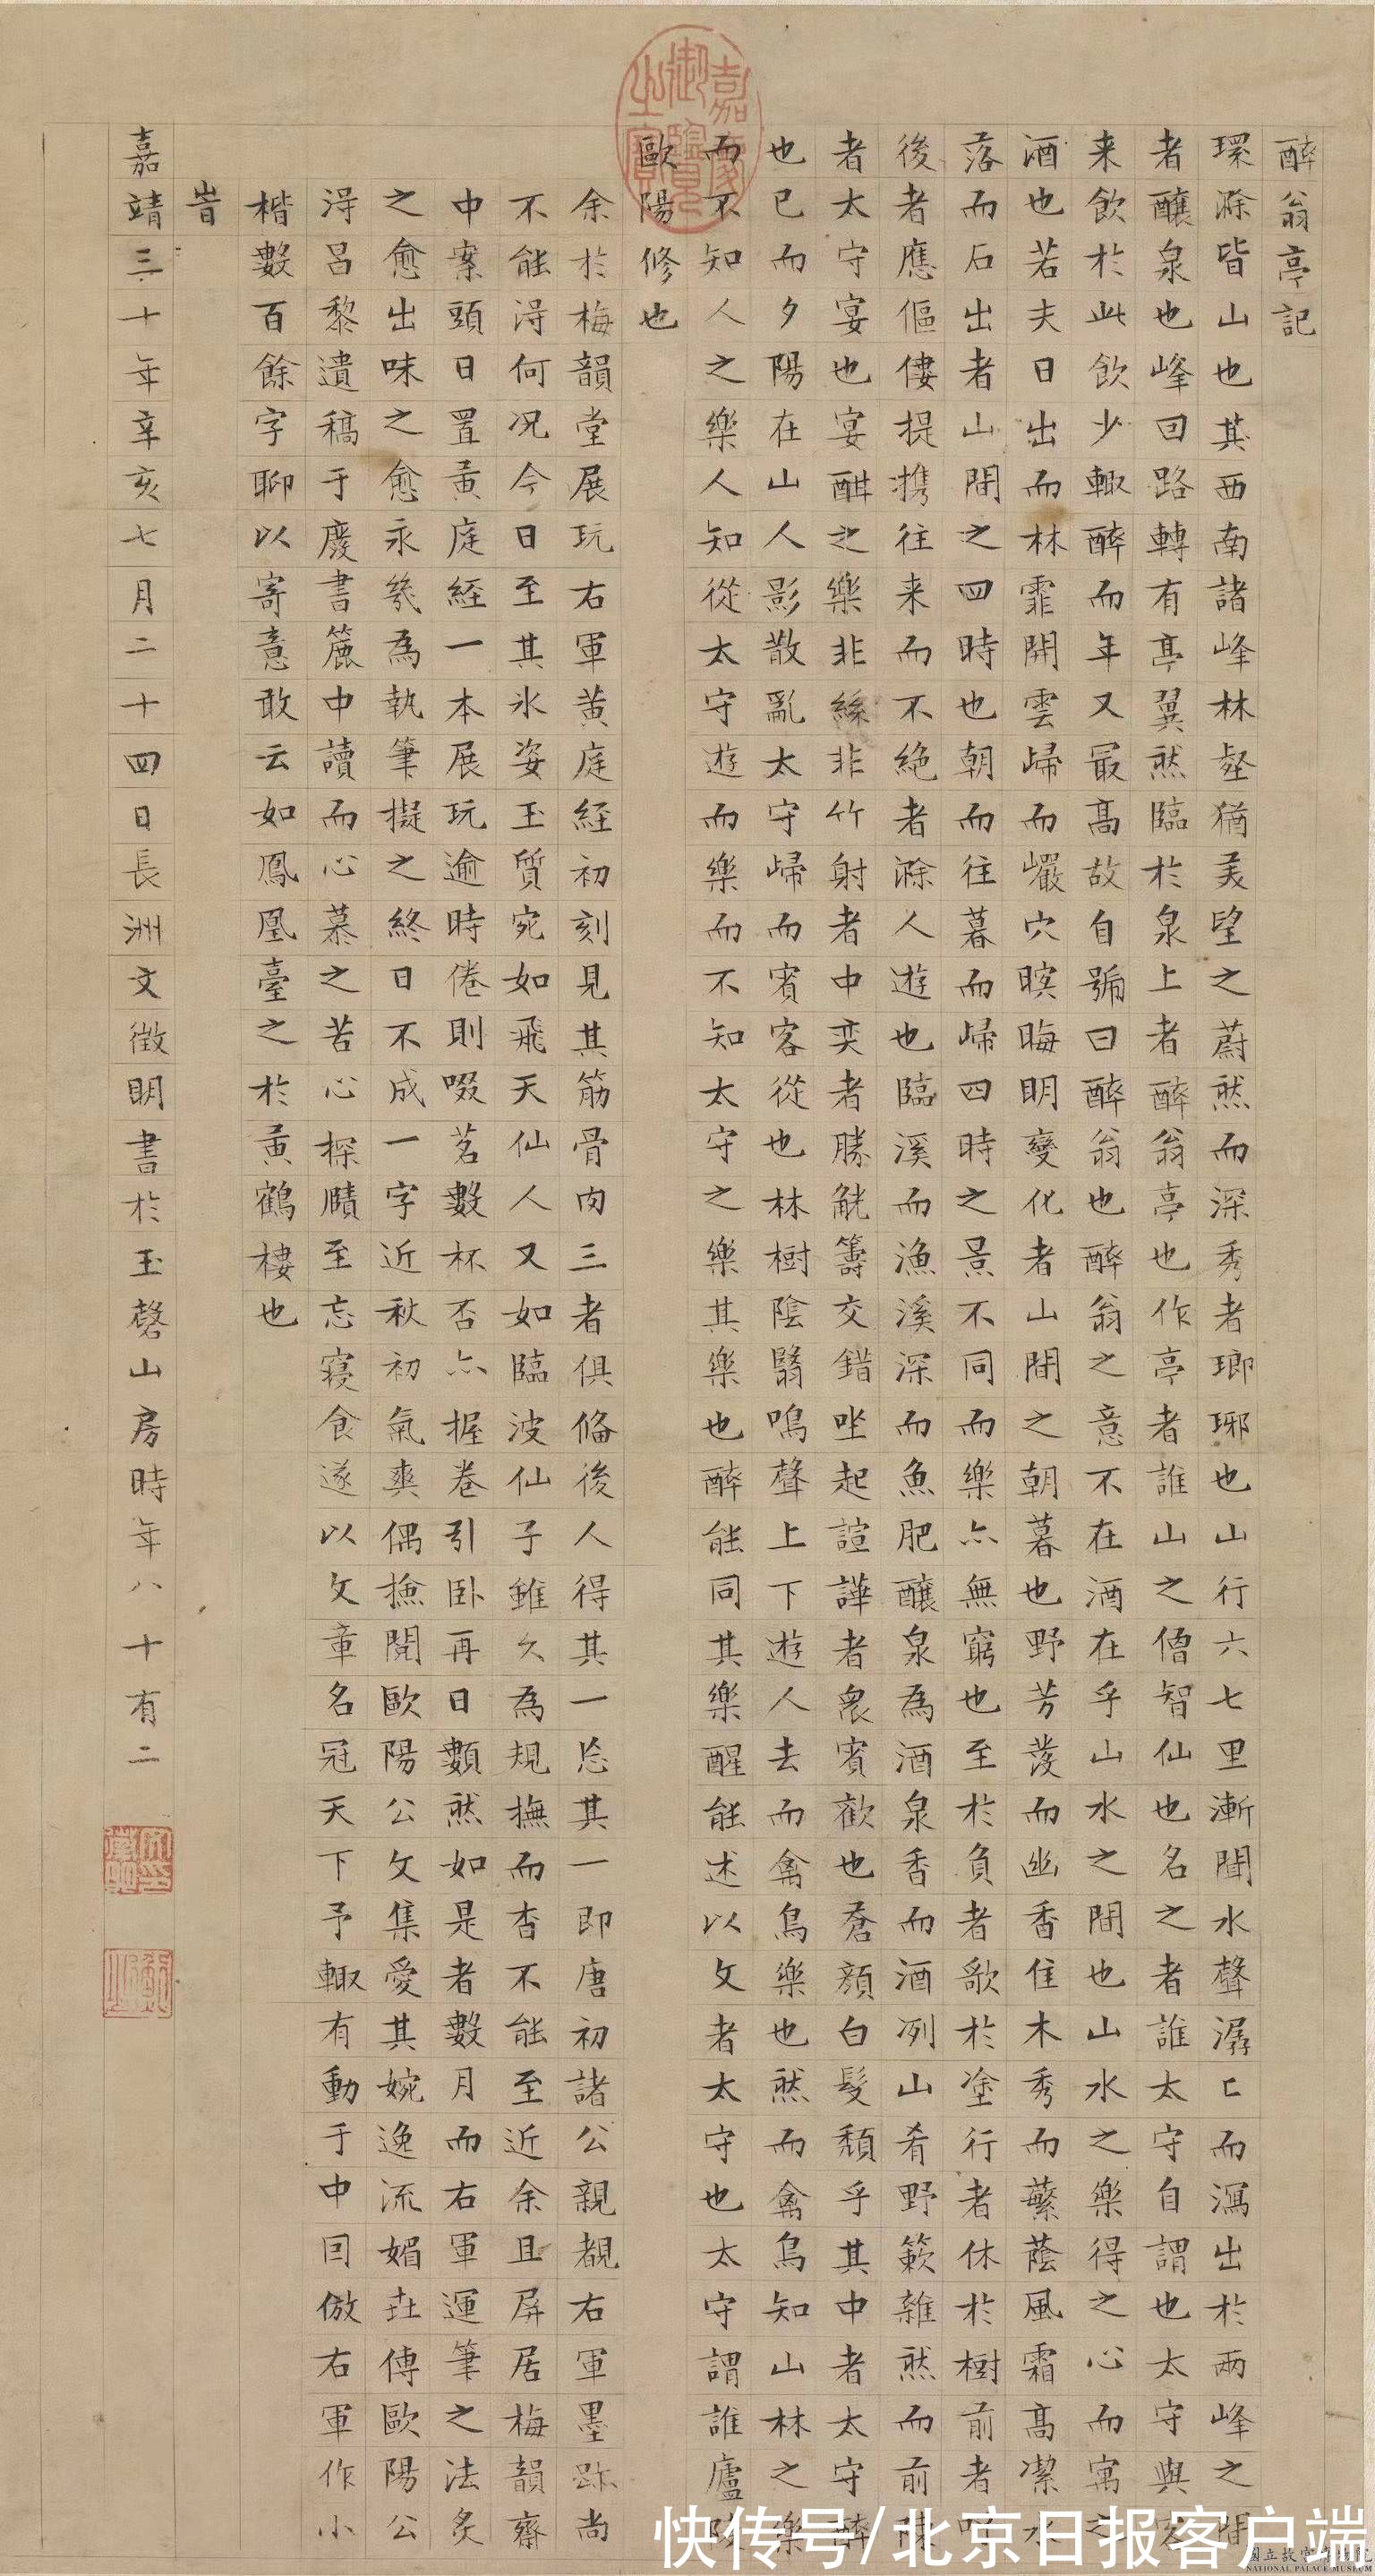 嘉慶御覽之寶
醉翁亭記
環滁皆山也其西南諸峰林壑猶美望之蔚然而深秀者瑯琊也山行六七里漸聞水聲潺〻而瀉出於兩峰之間
者釀泉也峰回路轉有亭翼然臨於泉上者醉翁亭也作亭者誰山之僧智仙也名之者誰太守自謂也太守與客
来飲於此飲少輒醉而年又最高故自號曰醉翁也醉翁之意不在酒在乎山水之間也山水之樂得之心而寓之
酒也若夫日出而林霏開雲歸而巖穴暝晦明變化者山間之朝暮也野芳發而幽香佳木秀而蘩蔭風霜高潔水
落而石出者山間之四時也朝而往暮而歸四時之景不同而樂亦無窮也至於負者歌於塗行者休於樹前者呼
後者應傴僂提攜往来而不絶者滁人遊也臨溪而漁溪深而魚肥釀泉為酒泉香而酒冽山肴野簌雜然而前陳
者太守宴也宴酣之樂非絲非竹射者中奕者勝觥籌交錯坐起諠譁者衆賓歡也蒼顏白髮頹乎其中者太守醉
也已而夕陽在山人影散亂太守歸而賓客從也林樹陰翳鳴聲上下遊人去而禽鳥樂也然而禽鳥知山林之樂
而不知人之樂人知從太守遊而樂而不知太守之樂其樂也醉能同其樂醒能述以文者太守也太守謂誰廬陵
歐陽修也
余於梅韻堂展玩右軍黄庭經初刻見其筋骨肉三者俱備後人得其一忘其一即唐初諸公親覩右軍墨跡尚
不能得何况今日至其氷姿玉質宛如飛天仙人又如臨波仙子雖久為規撫而杳不能至近余且屏居梅韻齋
中案頭日置黄庭經一本展玩逾時倦則啜茗數杯否亦握卷引臥再日數然如是者數月而右軍運筆之法炙
之愈出味之愈永幾為執筆擬之終日不成一字近秋初氣爽偶撿閱歐陽公文集愛其婉逸流媚世傳歐陽公
得昌黎遺稿于廢書簏中讀而心慕之苦心探賾至忘寢食遂以文章名冠天下予輒有動于中因倣右軍作小
楷數百餘字聊以寄意敢云如鳳凰臺之於黄鶴樓也
旹
嘉靖三十年辛亥七月二十四日長洲文徵明書於玉磬山房時年八十有二
快传号/北京日报客户端
國立故宮博物院
NATIONAL PALACE MUSEUM